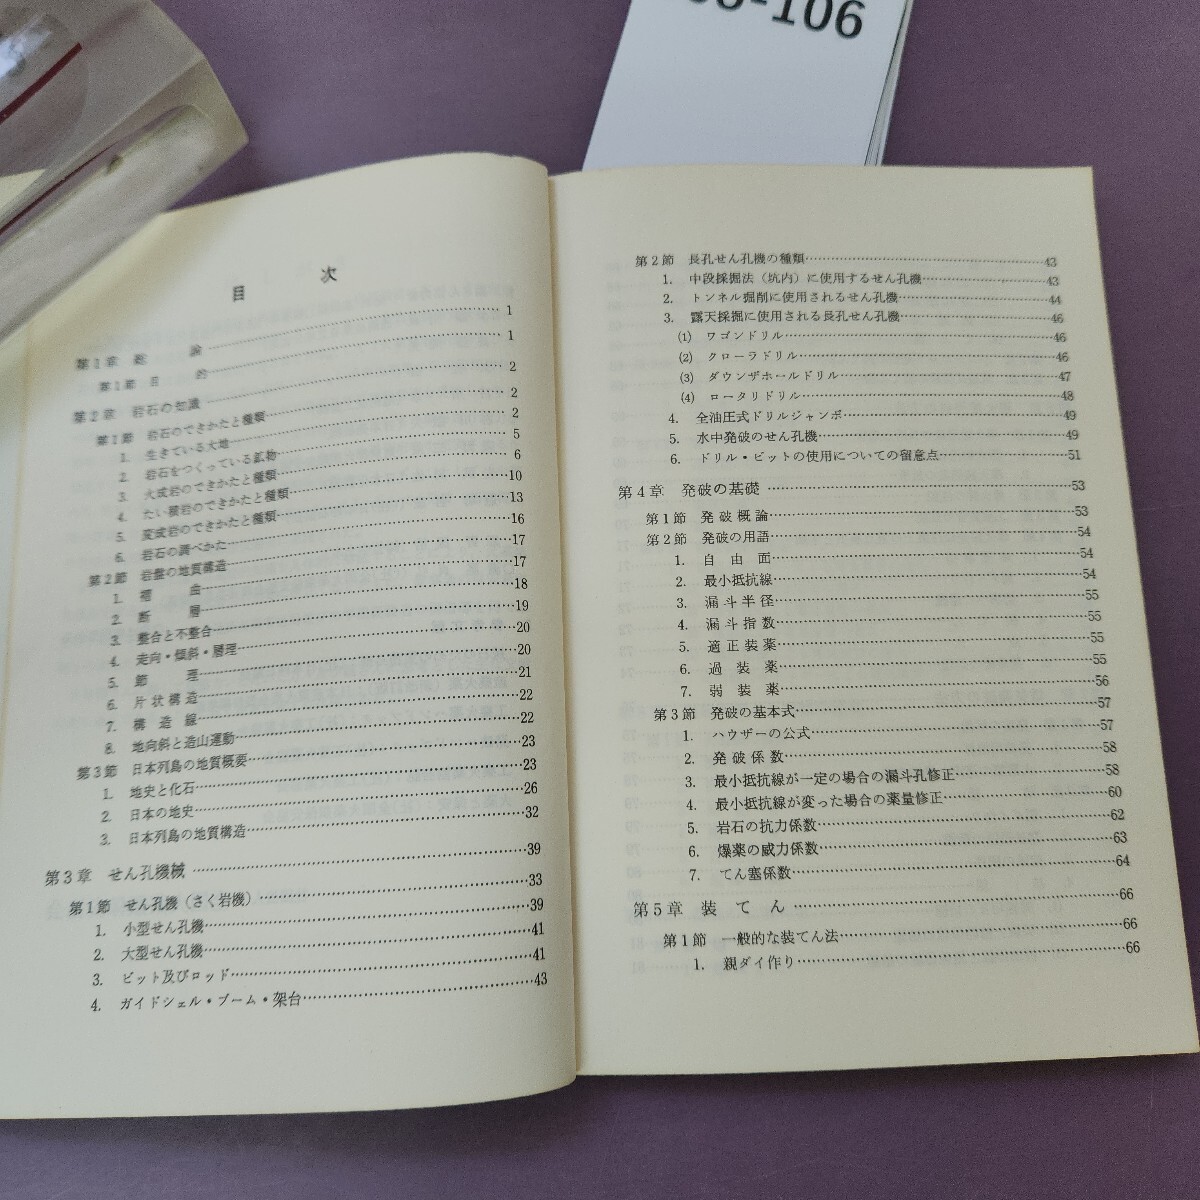 -106
目　次
第1章　総　論 1
第1節　目　的 1
第2章　岩石の知識 2
第1節　岩石のできかたと種類 2
1. 生きている大地 2
2. 岩石をつくっている鉱物 5
3. 火成岩のできかたと種類 6
4. たい積岩のできかたと種類 10
5. 変成岩のできかたと種類 13
6. 岩石の調べかた 16
第2節　岩盤の地質構造 17
1. 褶　曲 17
2. 断　層 18
3. 整合と不整合 19
4. 走向・傾斜・層理 20
5. 節　理 20
6. 片状構造 21
7. 構造線 22
8. 地向斜と造山運動 22
第3節　日本列島の地質概要 23
1. 地史と化石 23
2. 日本の地史 26
3. 日本列島の地質構造 32
第3章　せん孔機械 39
第1節　せん孔機（さく岩機） 33
1. 小型せん孔機 39
2. 大型せん孔機 41
3. ビット及びロッド 41
4. ガイドシェル・ブーム・架台 43
第2節　長孔せん孔機の種類 43
1. 中段採掘法（坑内）に使用するせん孔機 43
2. トンネル掘削に使用されるせん孔機 44
3. 露天採掘に使用される長孔せん孔機 46
(1) ワゴンドリル 46
(2) クローラドリル 46
(3) ダウンザホールドリル 47
(4) ロータリドリル 48
4. 全油圧式ドリルジャンボ 49
5. 水中発破のせん孔機 49
6. ドリル・ビットの使用についての留意点 51
第4章　発破の基礎 53
第1節　発破概論 53
第2節　発破の用語 54
1. 自由面 54
2. 最小抵抗線 54
3. 漏斗半径 55
4. 漏斗指数 55
5. 適正装薬 55
6. 過装薬 55
7. 弱装薬 56
第3節　発破の基本式 57
1. ハウザーの公式 57
2. 発破係数 58
3. 最小抵抗線が一定の場合の漏斗孔修正 58
4. 最小抵抗線が変った場合の薬量修正 60
5. 岩石の抗力係数 62
6. 爆薬の威力係数 63
7. てん塞係数 64
第5章　装てん 66
第1節　一般的な装てん法 66
1. 親ダイ作り 66